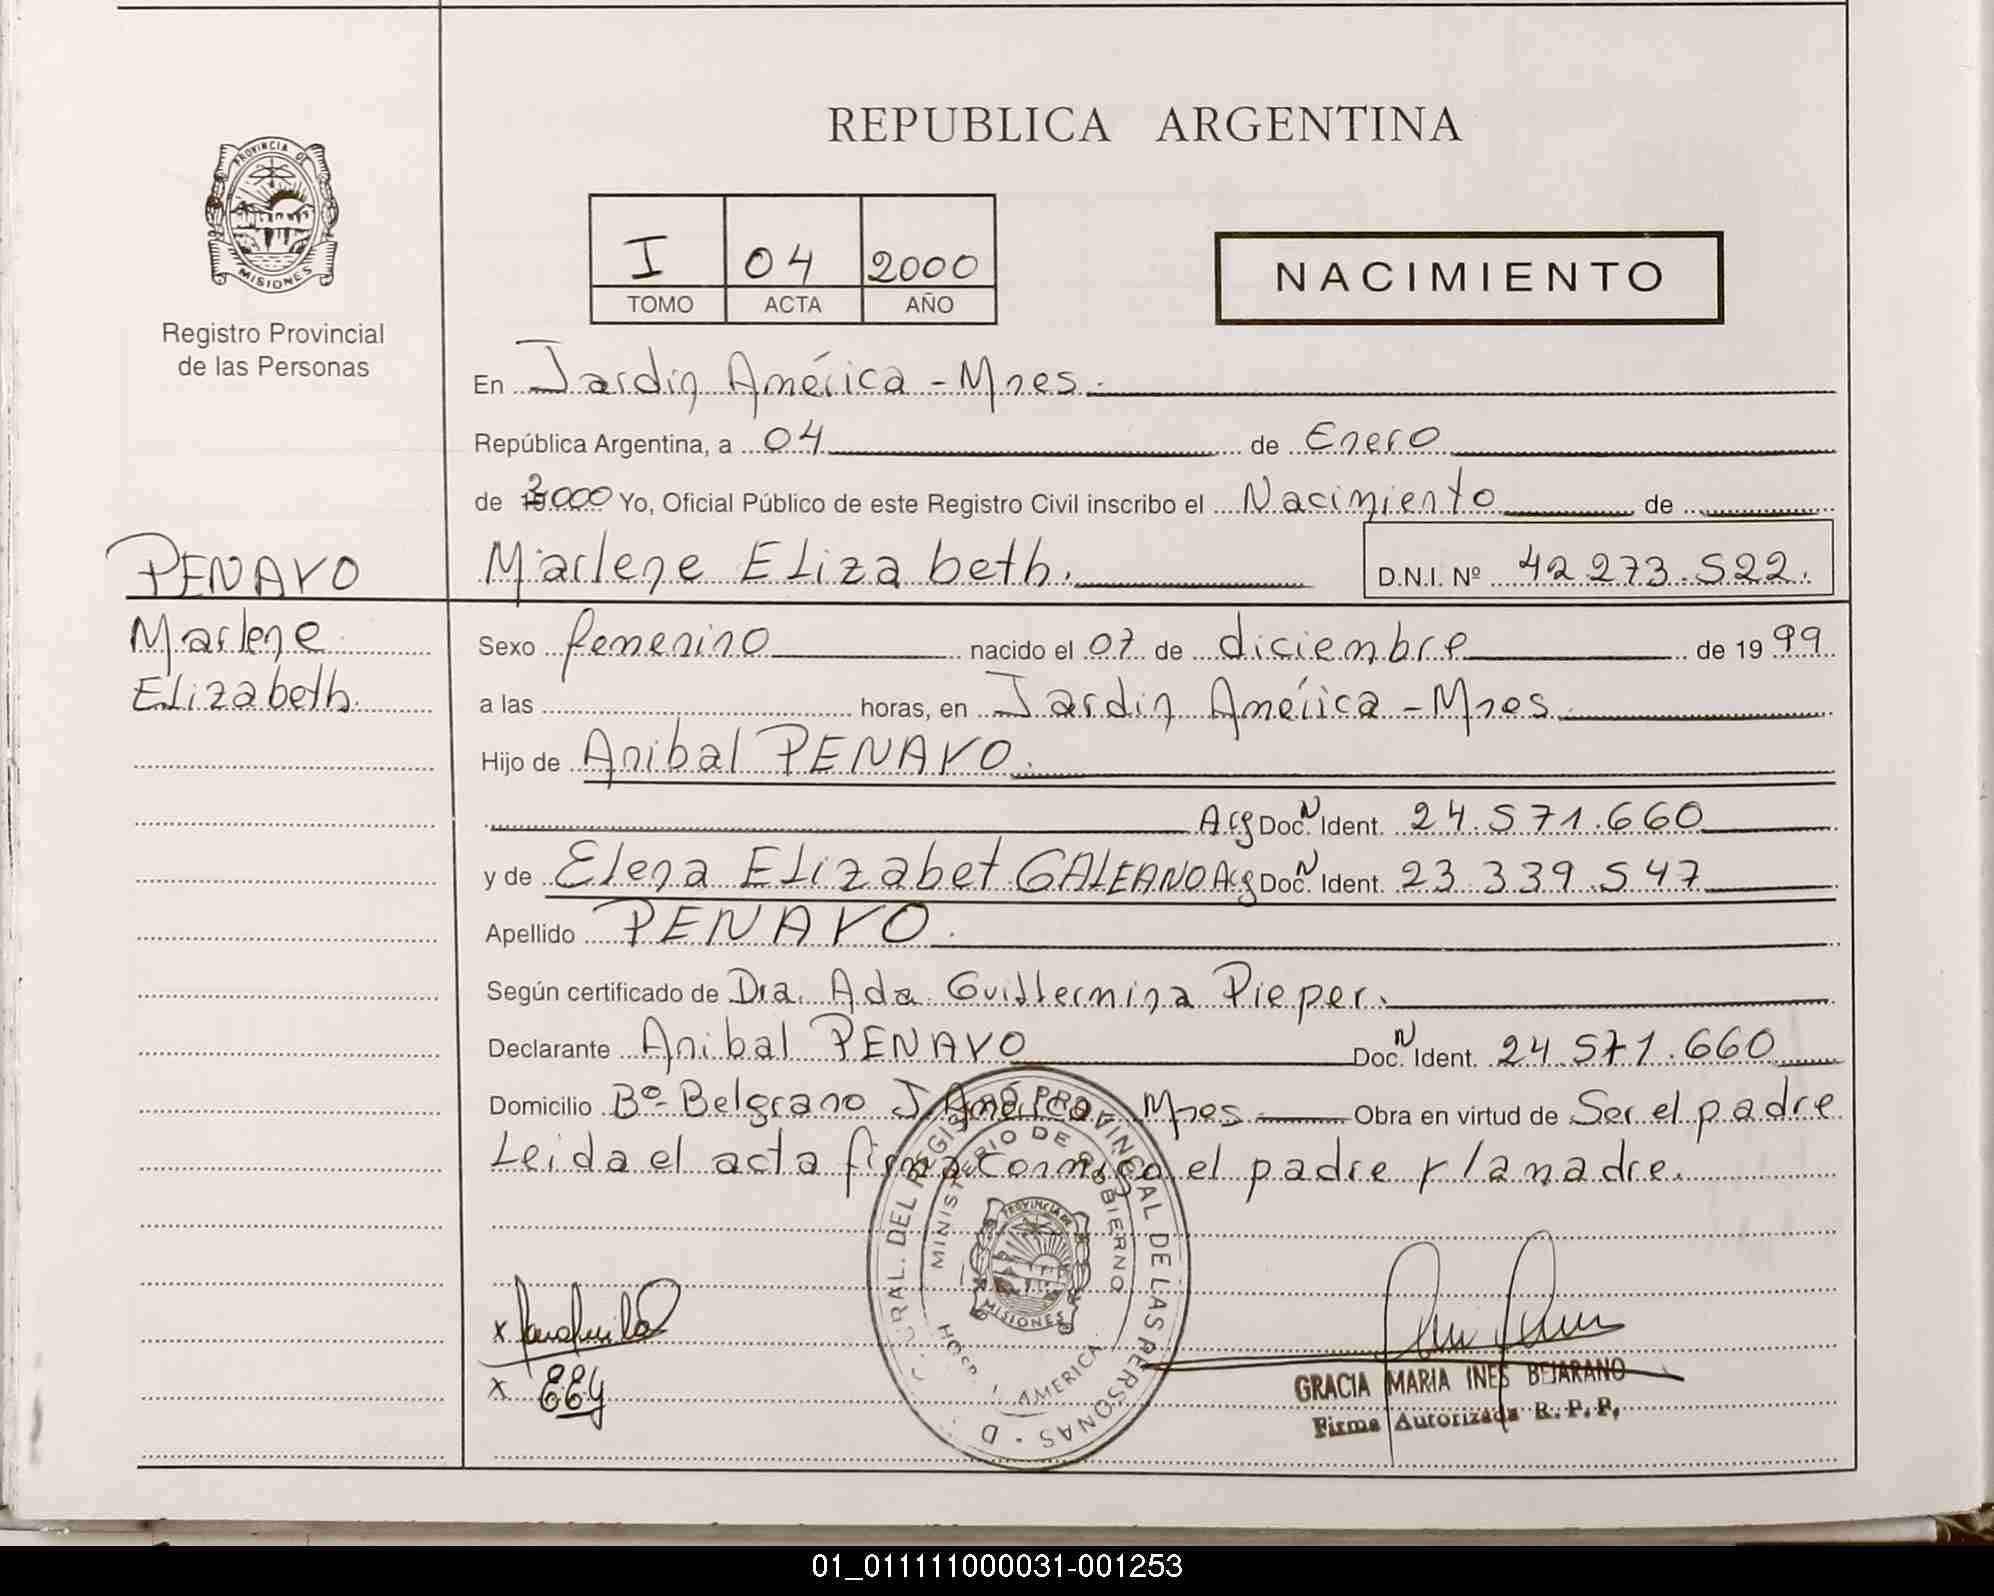 REPUBLICA ARGENTINA
PROVINCIA DE
MISIONES
Registro Provincial
de las Personas
I 04 2000
TOMO ACTA AÑO
NACIMIENTO
En Jardin América - Mnes.
República Argentina, a 04 de Enero
de 2000 Yo, Oficial Público de este Registro Civil inscribo el Nacimiento de
PENAYO
Marlene Elizabeth. D.N.I. Nº 42.273.522.
Marlene
Elizabeth.
Sexo femenino nacido el 07 de diciembre de 1999
a las horas, en Jardin América - Mnes.
Hijo de Anibal PENAYO.
Arg Doc. N Ident. 24.571.660
y de Elena Elizabet GALEANO Arg Doc. N Ident. 23.339.547
Apellido PENAYO.
Según certificado de Dra. Ada Guillermina Pieper.
Declarante Anibal PENAYO Doc. N Ident. 24.571.660
Domicilio Bº- Belgrano J. América Mnes Obra en virtud de Ser el padre
Leida el acta firma conmigo el padre y la madre.
GRAL. DEL REGISTRO PROVINCIAL DE LAS PERSONAS - D
MINISTERIO DE GOBIERNO
PROVINCIA DE
MISIONES
AMERICA
x
x EEG
GRACIA MARIA INES BEJARANO
Firma Autorizada R.P.P.
01_011111000031-001253